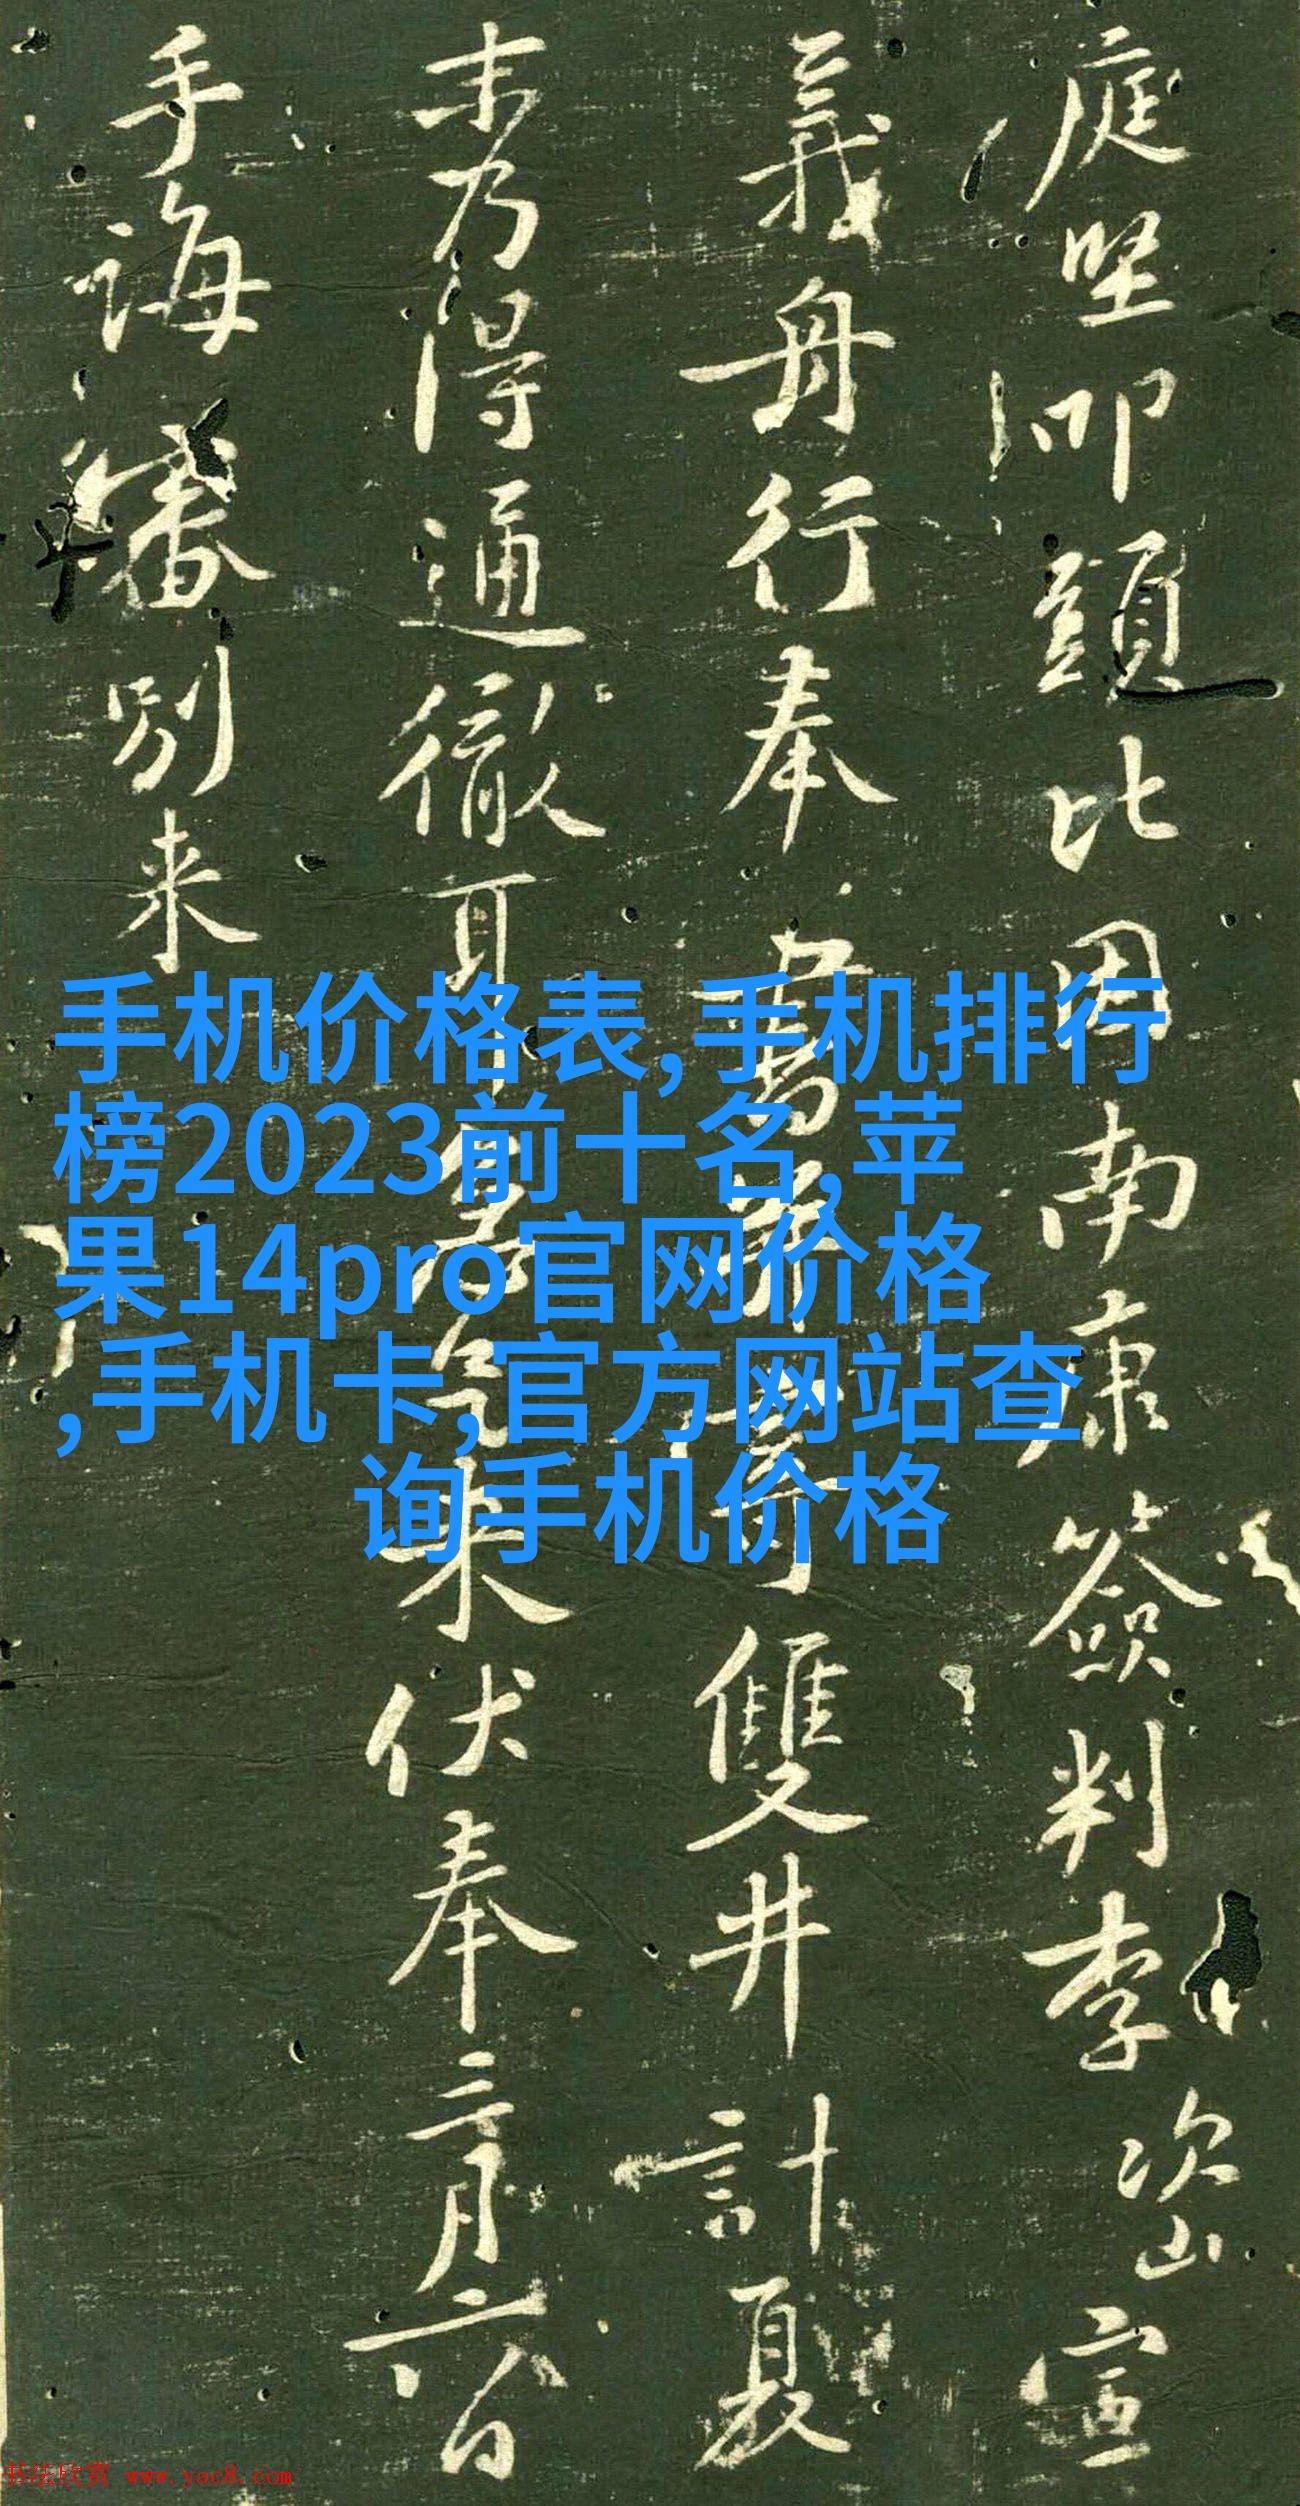 庭坚叩頭比因南康簽判李次山宣
義舟行奉
雙井計夏
末乃得通徹耳
来伏奉三月六日
手誨審別来
手机价格表,手机排行
榜2023前十名,苹
果14pro官网价格
,手机卡,官方网站查
询手机价格
书法欣赏 www.yac8.com